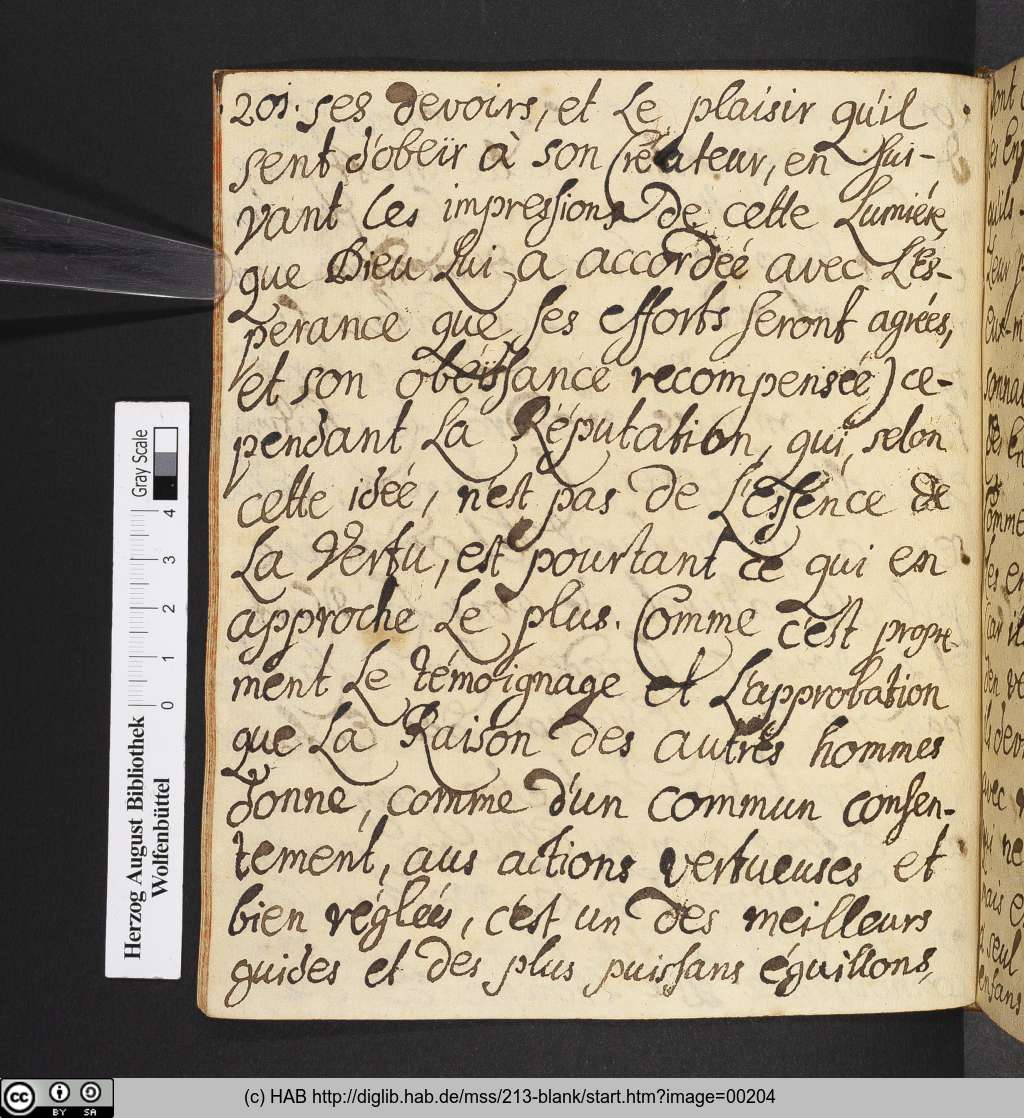 201. ses devoirs, et Le plaisir qu'il
sent d'obeïr à son Createur, en sui-
vant les impressions de cette Lumiére,
que Dieu Lui a accordéé avec L'Es-
pèrance que ses efforts seront agréés,
et son obéïssance recompenséé) ce-
pendant La Réputation, qui, selon
cette idéé, n'est pas de L'essence de
La Vertu, est pourtant ce qui en
approche Le plus. Comme c'est propre-
ment Le témoignage et L'approbation
que La Raison des autres hommes
donne, comme d'un commun consen-
tement, aus actions vertueuses et
bien réglées, c'est un des meilleurs
guides et des plus puissans éguillons,
Herzog August Bibliothek
Wolfenbüttel
Gray Scale
0 1 2 3 4
(c) HAB http://diglib.hab.de/mss/213-blank/start.htm?image=00204
cc BY SA